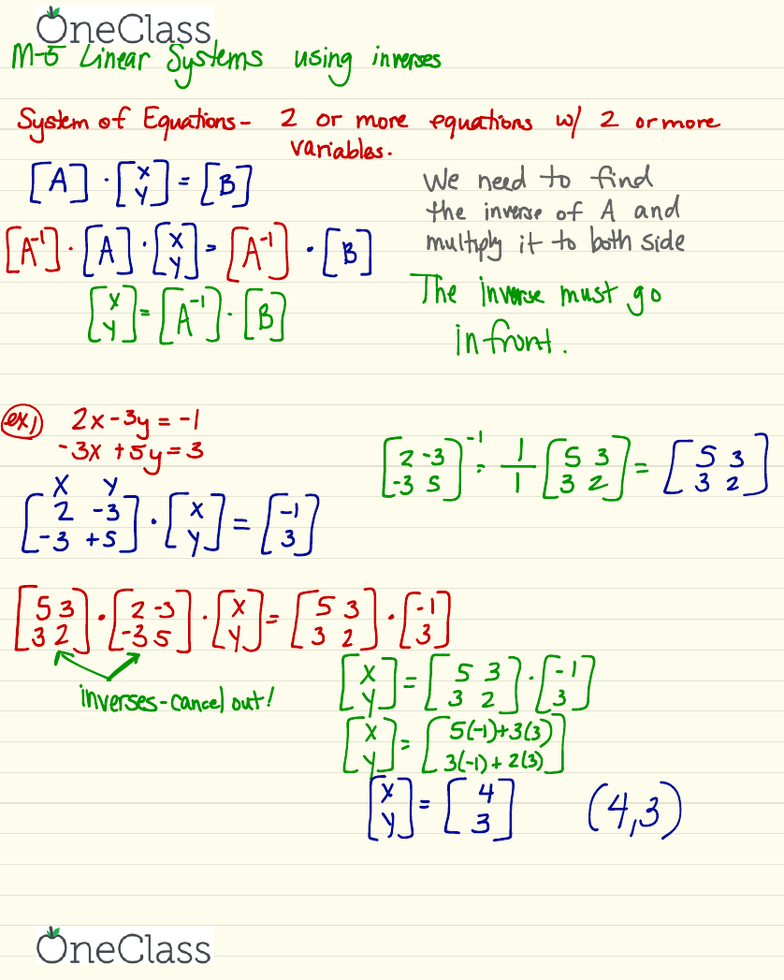 OneClass
M-5 Linear Systems using inverses
System of Equations - 2 or more equations w/ 2 or more
variables.
[A] · [x y] = [B]
We need to find
the inverse of A and
multiply it to both side
[A⁻¹] · [A] · [x y] = [A⁻¹] · [B]
[x y] = [A⁻¹] · [B]
The inverse must go
in front.
ex) 2x - 3y = -1
-3x + 5y = 3
[2 -3
-3 5]⁻¹ = 1/1 [5 3
3 2] = [5 3
3 2]
X Y
[2 -3
-3 +5] · [x
y] = [-1
3]
[5 3
3 2] · [2 -3
-3 5] · [x
y] = [5 3
3 2] · [-1
3]
inverses - cancel out!
[x
y] = [5 3
3 2] · [-1
3]
[x
y] = [5(-1)+3(3)
3(-1)+2(3)]
[x
y] = [4
3] (4,3)
OneClass